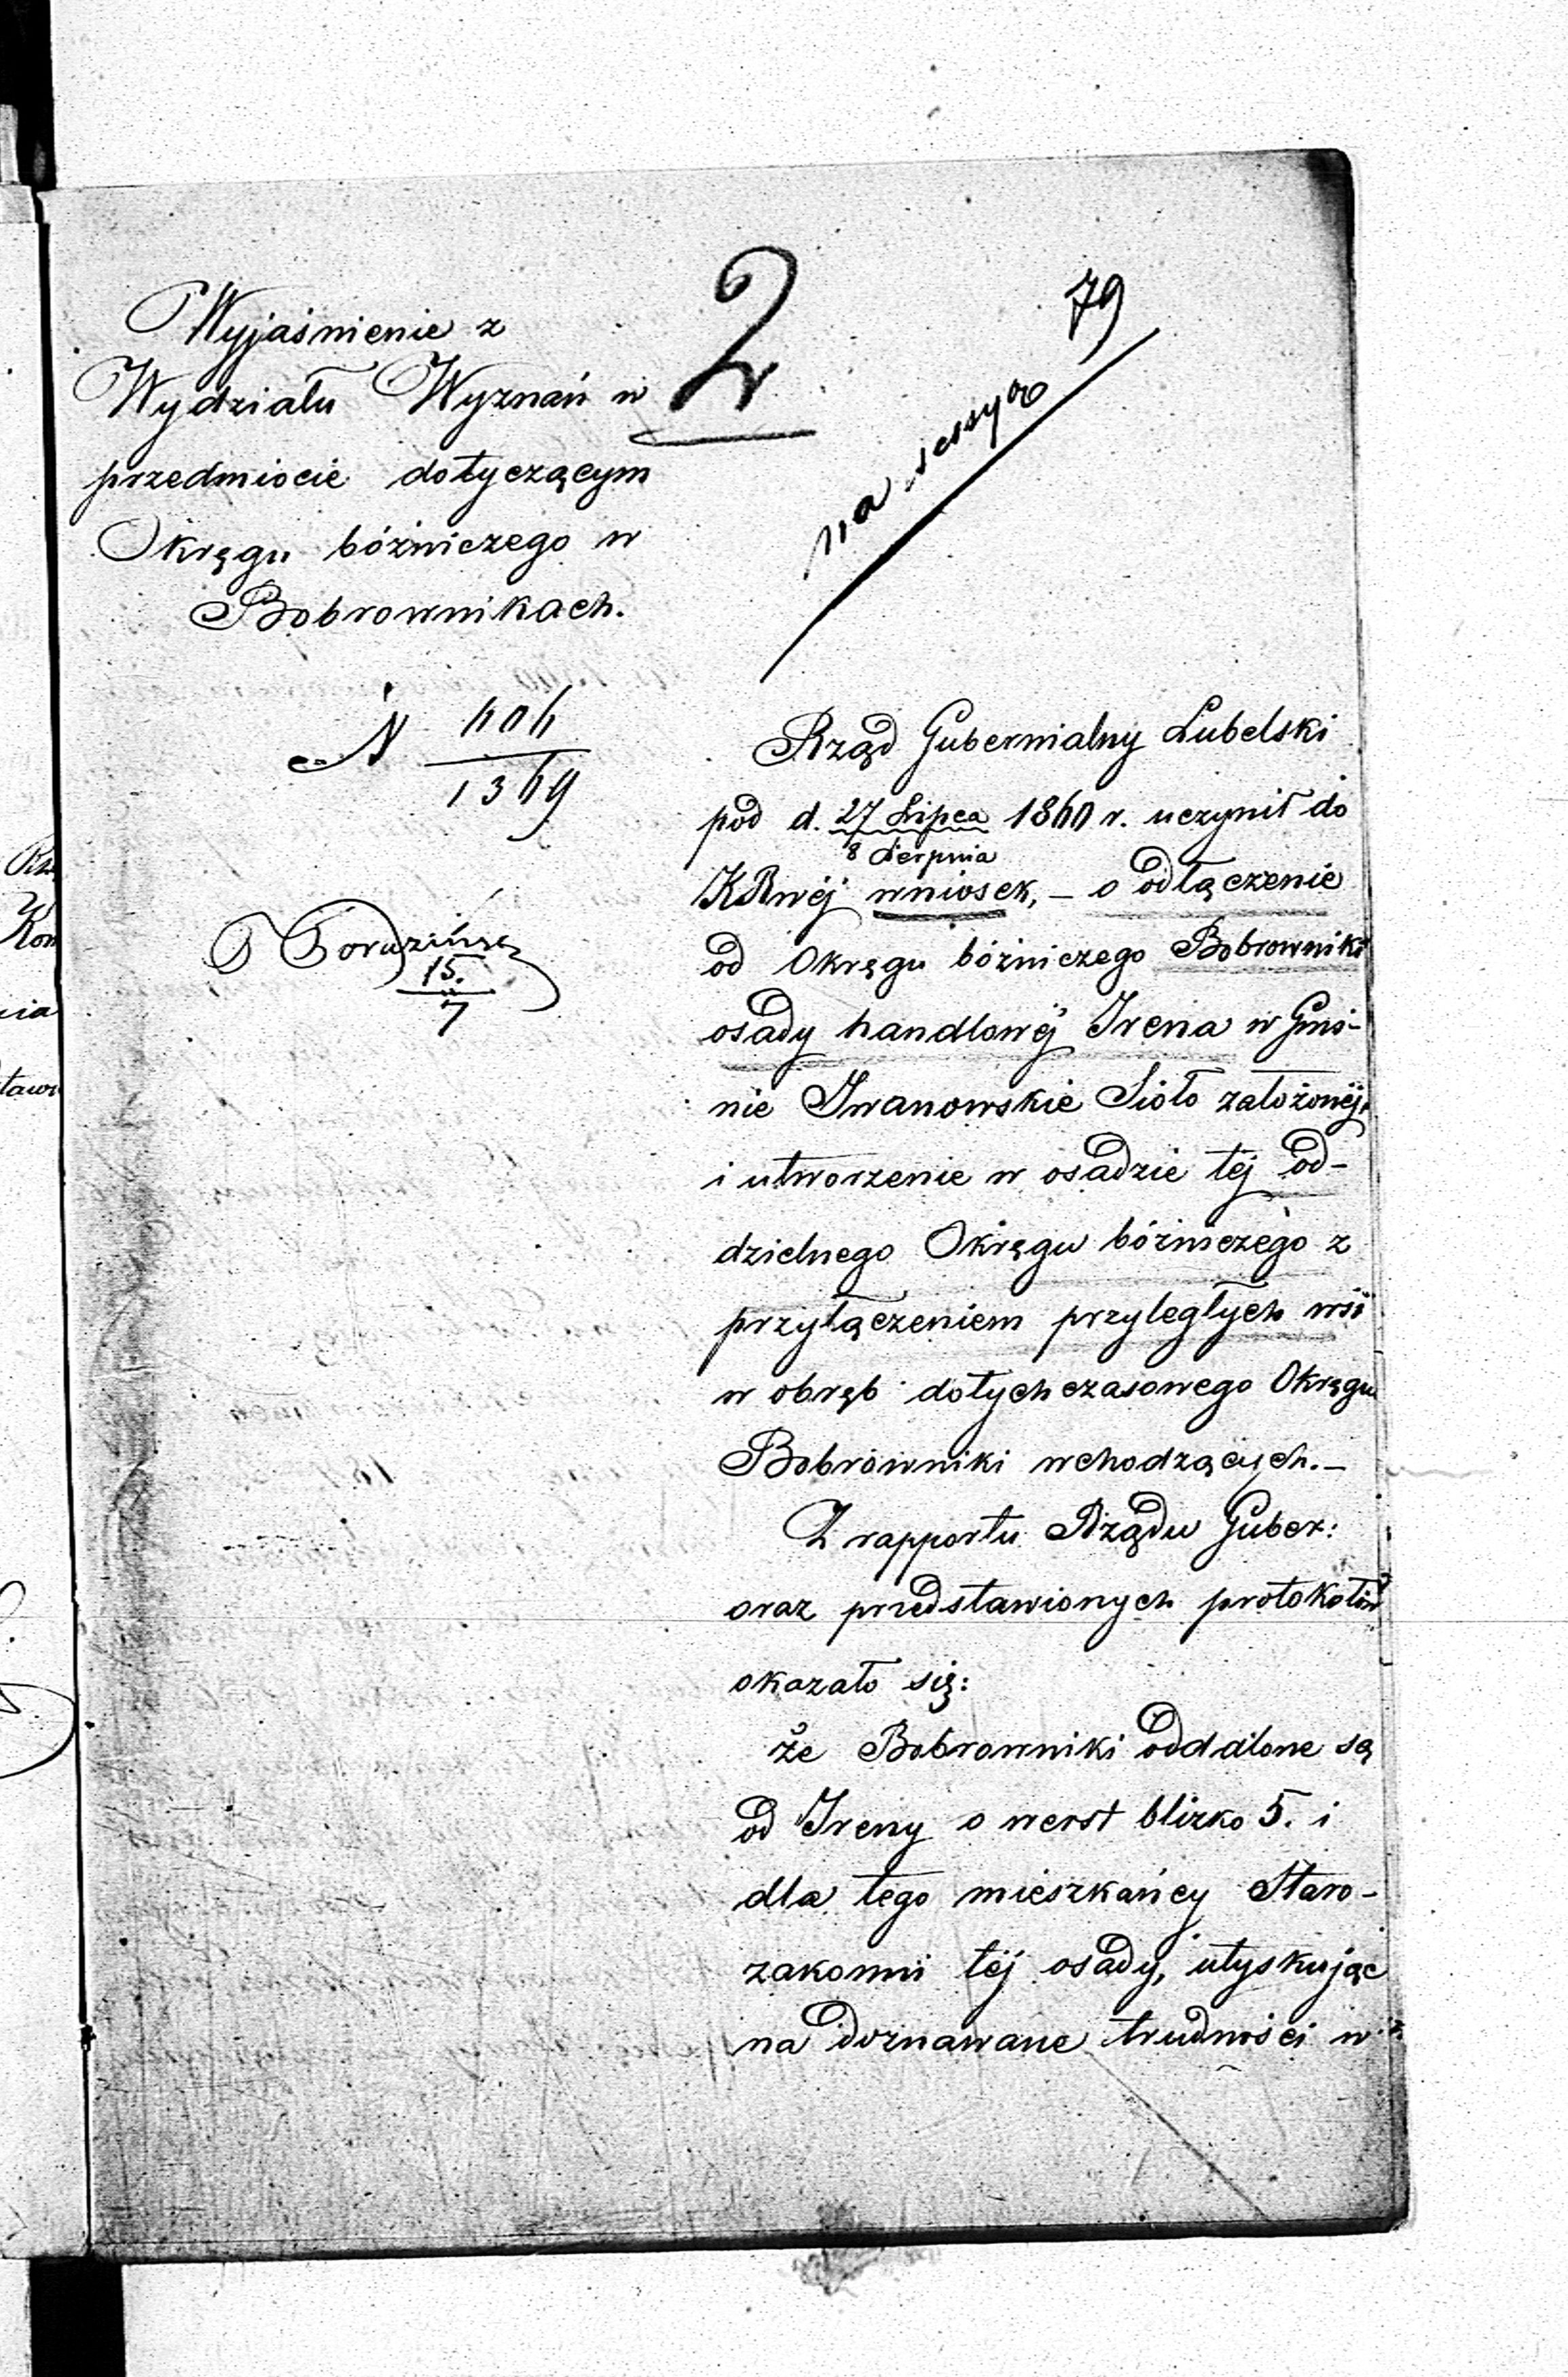 79
2
na sessyą
Wyjaśnienie z
Wydziału Wyznań w
przedmiocie dotyczącym
Okręgu bóżniczego w
Bobrownikach.
N
15.
7
Rząd Gubernialny Lubelski
pod d. 27 Lipca 1860 r. uczynił do
8 Sierpnia
KRwéj wniosek, – o odłączenie
od Okręgu bóżniczego Bobrowniki
osady handlowéj Irena w Gmi-
nie Iwanowskie Sioło założonéj,
i utworzenie w osadzie téj od-
dzielnego Okręgu bóżniczego z
przyłączeniem przyległych wsi
w obręb dotychczasowego Okręgu
Bobrowniki wchodzących. –
Z rapportu Rządu Guber:
oraz przedstawionych protokołów
okazało się:
że Bobrowniki oddalone są
od Ireny o werst blizko 5. i
dla tego mieszkańcy Staro-
zakonni téj osady, utyskując
na doznawane trudności w